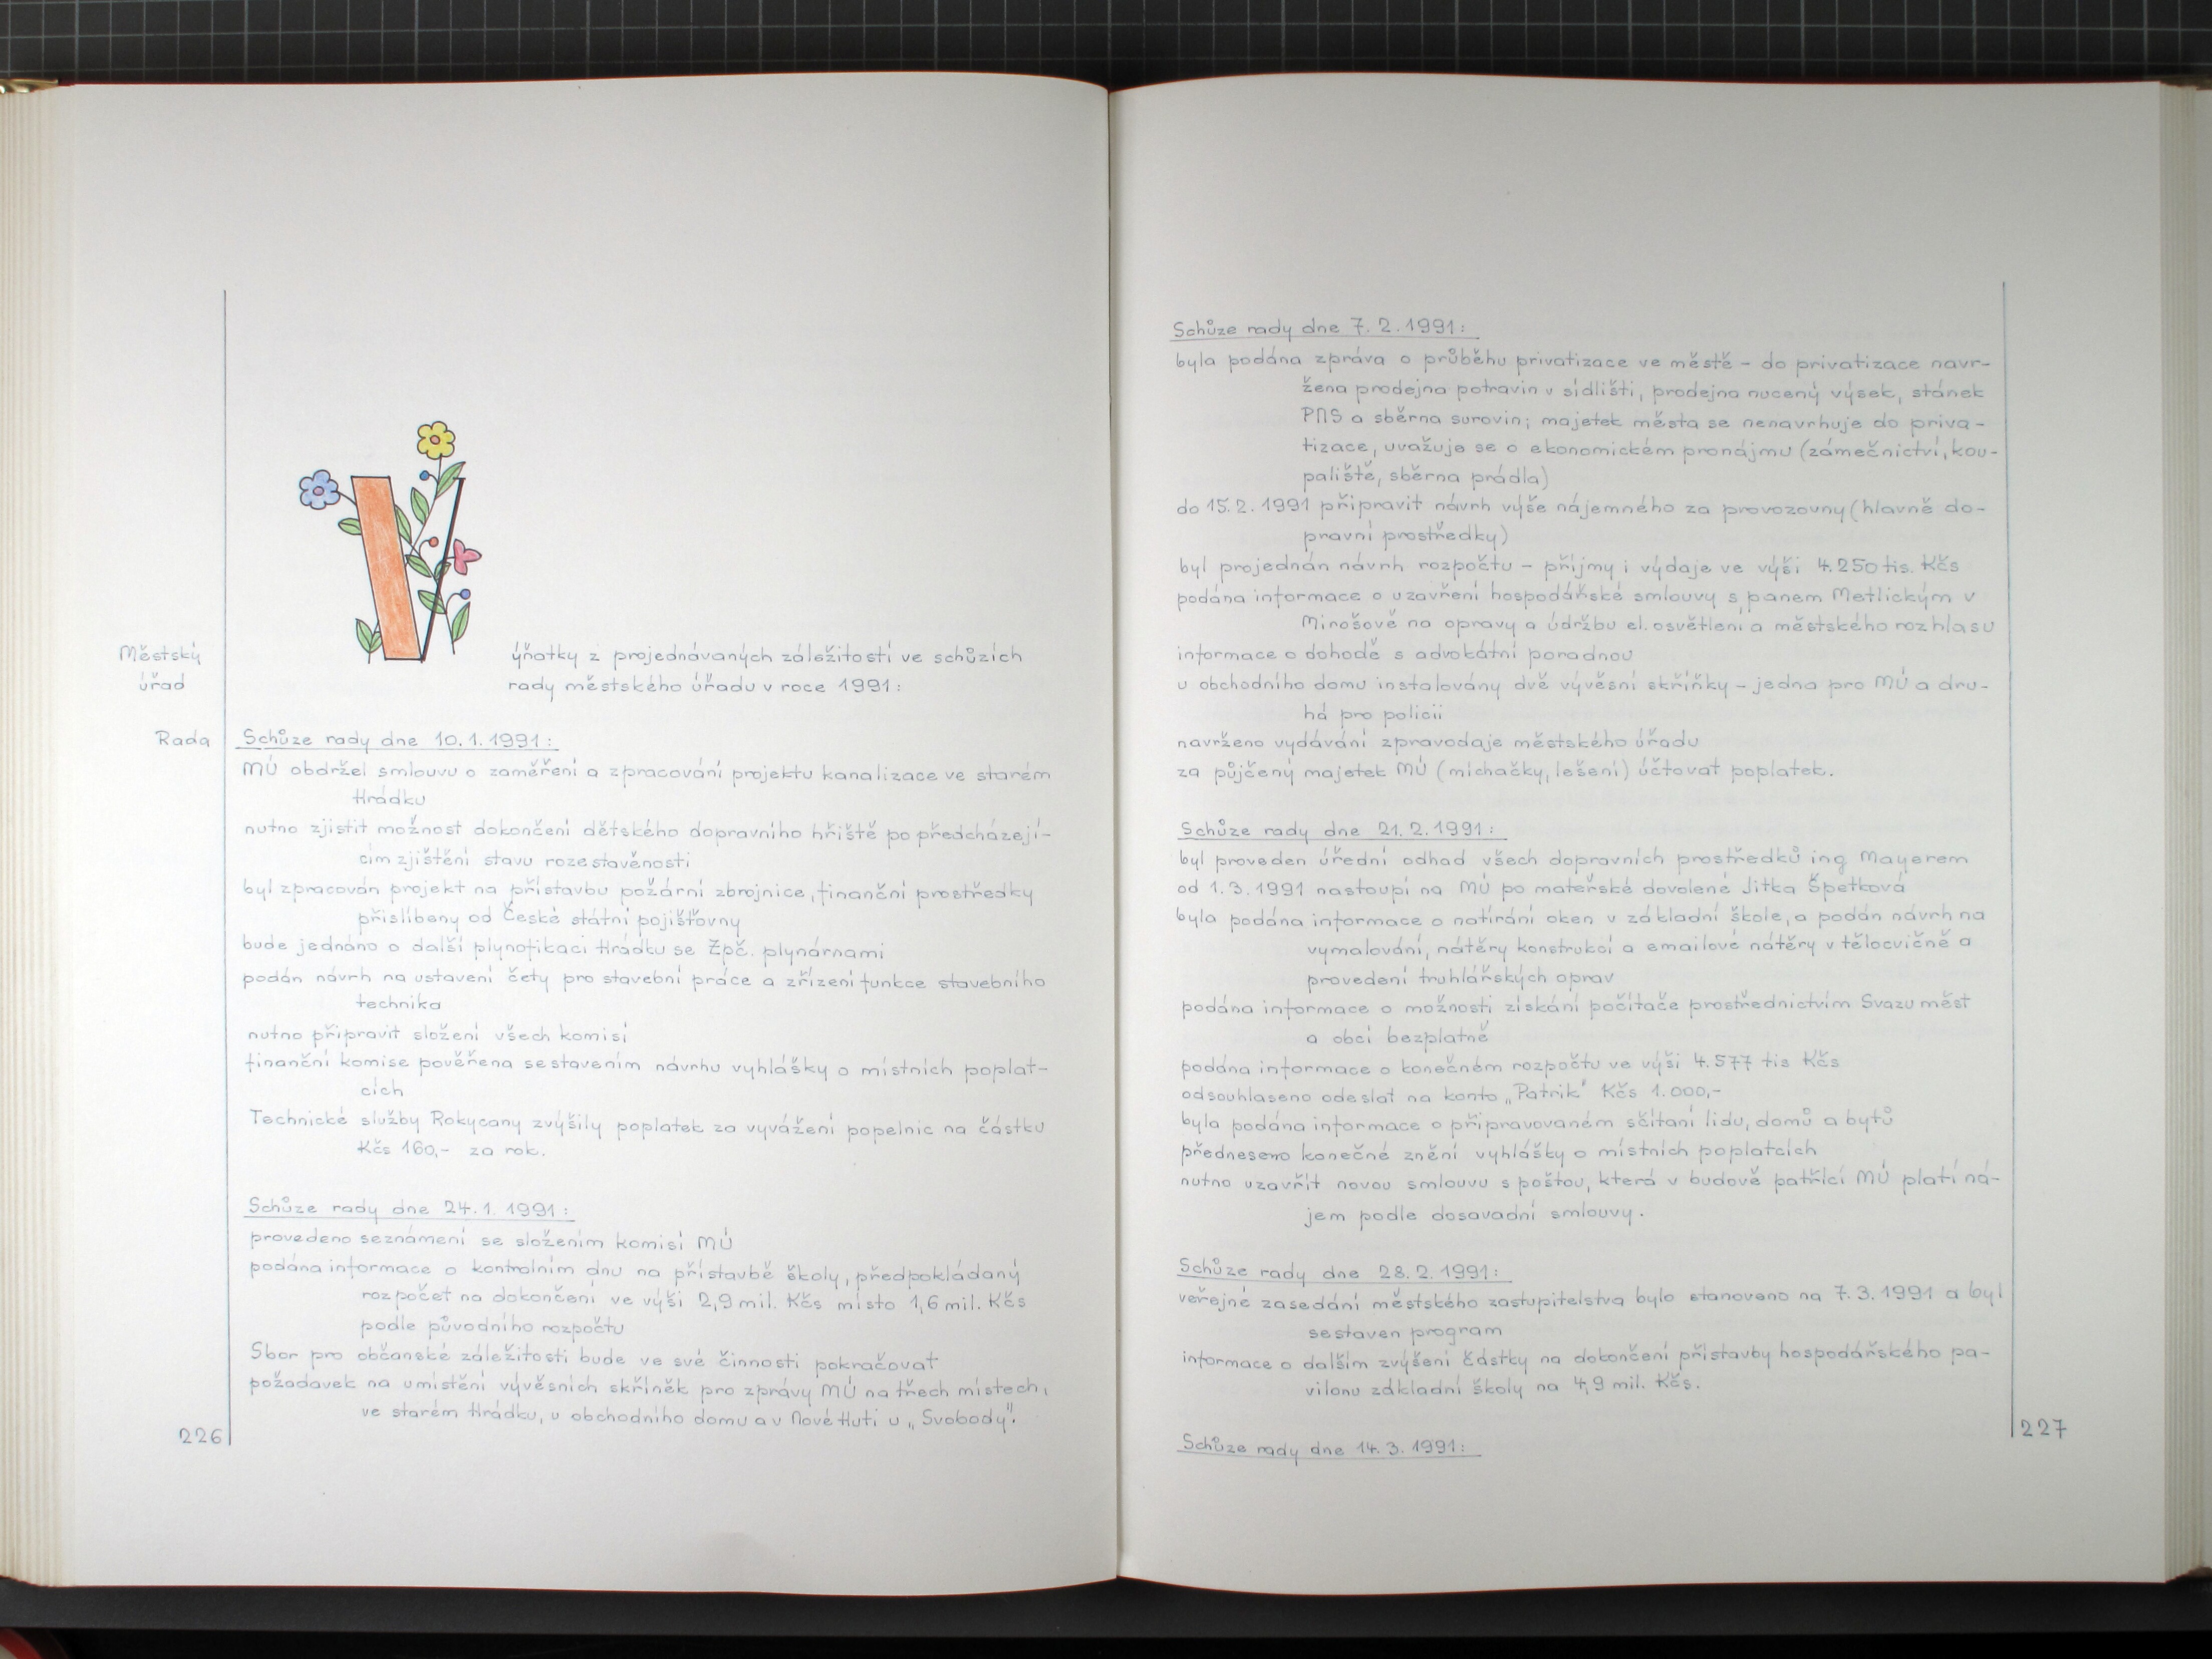 Městský
úřad
Výňatky z projednávaných záležitostí ve schůzích
rady městského úřadu v roce 1991:
Rada
Schůze rady dne 10.1.1991:
MÚ obdržel smlouvu o zaměření a zpracování projektu kanalizace ve starém
Hrádku
nutno zjistit možnost dokončení dětského dopravního hřiště po předcházejí-
cím zjištění stavu rozestavěnosti
byl zpracován projekt na přístavbu požární zbrojnice, finanční prostředky
přislíbeny od České státní pojišťovny
bude jednáno o další plynofikaci Hrádku se Zpč. plynárnami
podán návrh na ustavení čety pro stavební práce a zřízení funkce stavebního
technika
nutno připravit složení všech komisí
finanční komise pověřena sestavením návrhu vyhlášky o místních poplat-
cích
Technické služby Rokycany zvýšily poplatek za vyvážení popelnic na částku
Kčs 160,- za rok.
Schůze rady dne 24.1.1991:
provedeno seznámení se složením komisí MÚ
podána informace o kontrolním dnu na přístavbě školy, předpokládaný
rozpočet na dokončení ve výši 2,9 mil. Kčs místo 1,6 mil. Kčs
podle původního rozpočtu
Sbor pro občanské záležitosti bude ve své činnosti pokračovat
požadavek na umístění vývěsních skříněk pro zprávy MÚ na třech místech,
ve starém Hrádku, u obchodního domu a v Nové Huti u „Svobody".
226
Schůze rady dne 7.2.1991:
byla podána zpráva o průběhu privatizace ve městě - do privatizace navr-
žena prodejna potravin v sídlišti, prodejna nucený výsek, stánek
PNS a sběrna surovin; majetek města se nenavrhuje do priva-
tizace, uvažuje se o ekonomickém pronájmu (zámečnictví, kou-
paliště, sběrna prádla)
do 15.2.1991 připravit návrh výše nájemného za provozovny (hlavně do-
pravní prostředky)
byl projednán návrh rozpočtu - příjmy i výdaje ve výši 4.250 tis. Kčs
podána informace o uzavření hospodářské smlouvy s panem Metlickým v
Mirošově na opravy a údržbu el. osvětlení a městského rozhlasu
informace o dohodě s advokátní poradnou
u obchodního domu instalovány dvě vývěsní skříňky - jedna pro MÚ a dru-
há pro policii
navrženo vydávání zpravodaje městského úřadu
za půjčený majetek MÚ (míchačky, lešení) účtovat poplatek.
Schůze rady dne 21.2.1991:
byl proveden úřední odhad všech dopravních prostředků ing Mayerem
od 1.3.1991 nastoupí na MÚ po mateřské dovolené Jitka Špetková
byla podána informace o natírání oken v základní škole, a podán návrh na
vymalování, nátěry konstrukcí a emailové nátěry v tělocvičně a
provedení truhlářských oprav
podána informace o možnosti získání počítače prostřednictvím Svazu měst
a obcí bezplatně
podána informace o konečném rozpočtu ve výši 4.577 tis Kčs
odsouhlaseno odeslat na konto „Patrik" Kčs 1.000,-
byla podána informace o připravovaném sčítaní lidu, domů a bytů
předneseno konečné znění vyhlášky o místních poplatcích
nutno uzavřít novou smlouvu s poštou, která v budově patřící MÚ platí ná-
jem podle dosavadní smlouvy.
Schůze rady dne 28.2.1991:
veřejné zasedání městského zastupitelstva bylo stanoveno na 7.3.1991 a byl
sestaven program
informace o dalším zvýšení částky na dokončení přístavby hospodářského pa-
vilonu základní školy na 4,9 mil. Kčs.
Schůze rady dne 14.3.1991:
227